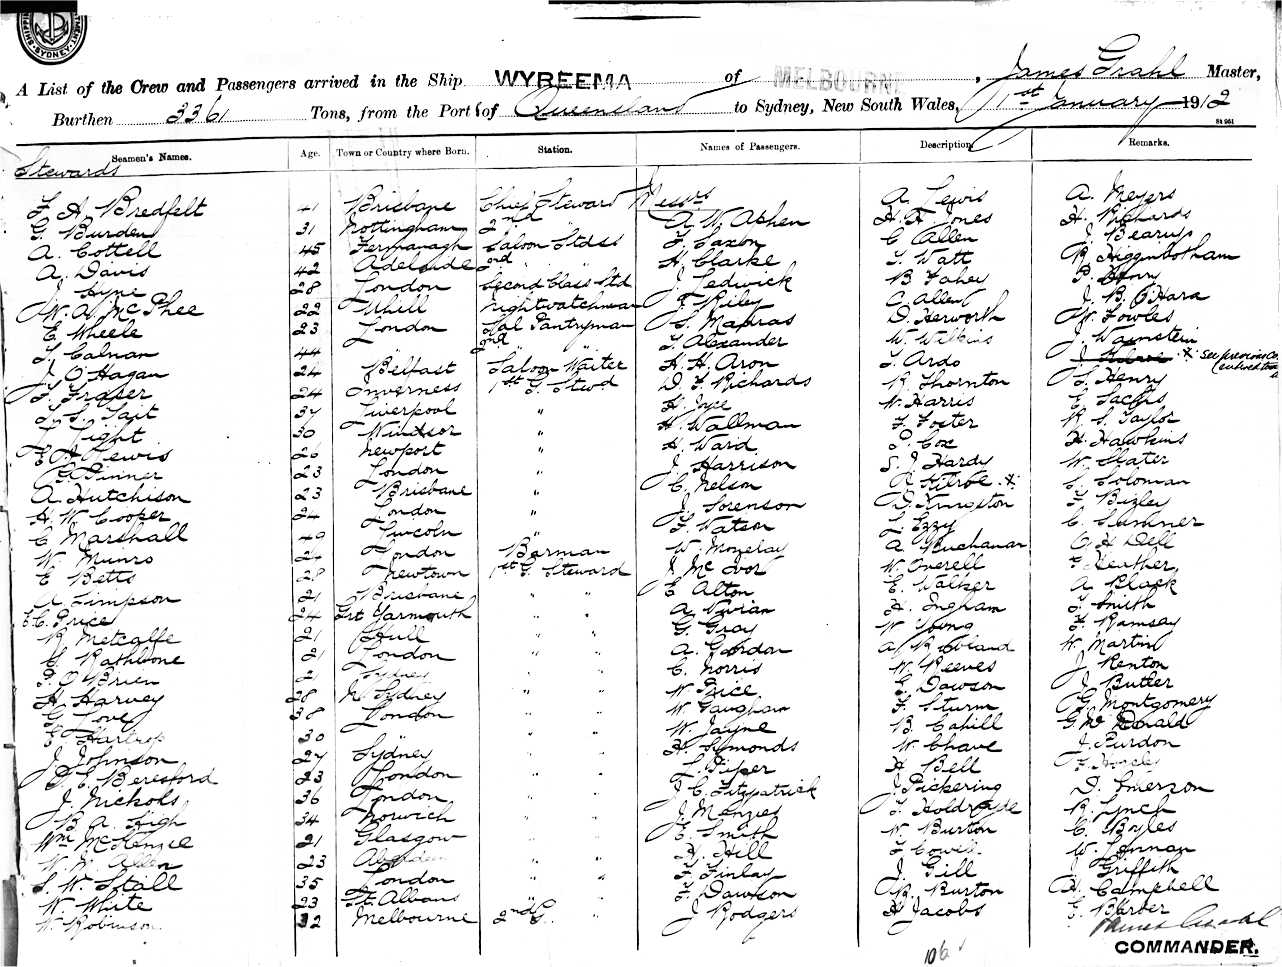 SYDNEY
A List of the Crew and Passengers arrived in the Ship WYREEMA of MELBOURNE, James Grahl Master,
Burthen 3361 Tons, from the Port of Queensland to Sydney, New South Wales, 1st January 1912
St 951
Seamen's Names. Age. Town or Country where Born. Station. Names of Passengers. Description. Remarks.
Stewards
F H Bredfelt 41 Brisbane Chief Steward Messrs A. Lewis A. Meyers
G. Burden 31 Nottingham 2nd " A. W. Aphen H. H. Jones H. Richards
A. Cottell 45 Fermanagh Saloon Stdss F. Saxon C Allen J. Bearup
A. Davis 42 Adelaide 2nd " " H. Clarke T. Watt R Higginbotham
J. Hine 28 London Second Class Std J. Ledwick B Fahey P. Henry
W. A. McPhee 22 Tyhill Nightwatchman J. Riley C Allen J. B. O'Hara
E Wheele 23 London Sal Pantryman S. Matras D. Herworth W. Fowles
T. Calnan 44 " 2nd " F. Alexander W. Wilkins J. Wainstein
J. O'Hagan 24 Belfast Saloon Waiter H. H. Aron T. Ardo * See previous
F. Fraser 24 Inverness 1st G. Stwd D. F. Richards R Thornton S. Henry
T. S. Tait 37 Liverpool " H. Joyce W. Harris E Sachs
T. Light 30 Windsor " H. Wallman F. Foster R. S. Taylor
E A Lewis 26 Newport " H. Ward. P. Cox H. Hawkins
G. Pinner 23 London " J. Harrison S. J. Hardy W. Slater
A. Hutchison 23 Brisbane " C. Nelson A Kilroe * S. Soloman
H. W. Cooper 24 London " J. Sorenson D. Kingston F. Bixley
C. Marshall 40 Lincoln " F. Watson L. Ezzy C. Sumner
W. Munro 24 London Barman W. Mozelay A Buchanan O H Dell
E Betts 28 Newtown 1st G. Steward J. McIvor W. Overell G Heather,
A Simpson 21 Brisbane " " E Alton E. Walker A Black
E C. Price 24 Grt Yarmouth " " A Vivian H. Ingham T. Smith
R Metcalfe 21 Hull " " G. Gray W. Young F. Ramsay
C. Rathbone 21 London " " A. Gordon A Rowland W. Martin
P. O'Brien 21 Sydney " " C. Norris W. Reeves J. Renton
H Harvey 28 N. Sydney " " W. Price. G. Dawson J. Butler
G. Love 38 London " " W. Vaughan F. Sturm G. Montgomery
G. Hartrup 30 " " " W. Jayne B. Cahill G. McDonald
J. Johnson 27 Sydney " " H. Symonds W. Chave J. Purdon
G. E. Beresford 23 London " " L. Piper H Bell
J. Nichols 36 London " " J. C. Fitzpatrick J Pickering D. Emerson
B. A. High 34 Norwich " " J. Menzies T. Holdroyde R. Lynch
Wm McKenzie 21 Glasgow " " E. Smith W. Burton C. Boyles
W. W. Allen 23 Aberdeen " " H. Hill T Cowell W. Lonman
S. W. Stall 35 London " " F. Finlay J. Gill J. Griffith
W. White 23 St Albans " " F. Dawson B. Burton H. Campbell
W. Robinson 32 Melbourne 2nd G. " J Rodgers H Jacobs G. Barber
106
James Grahl
COMMANDER.